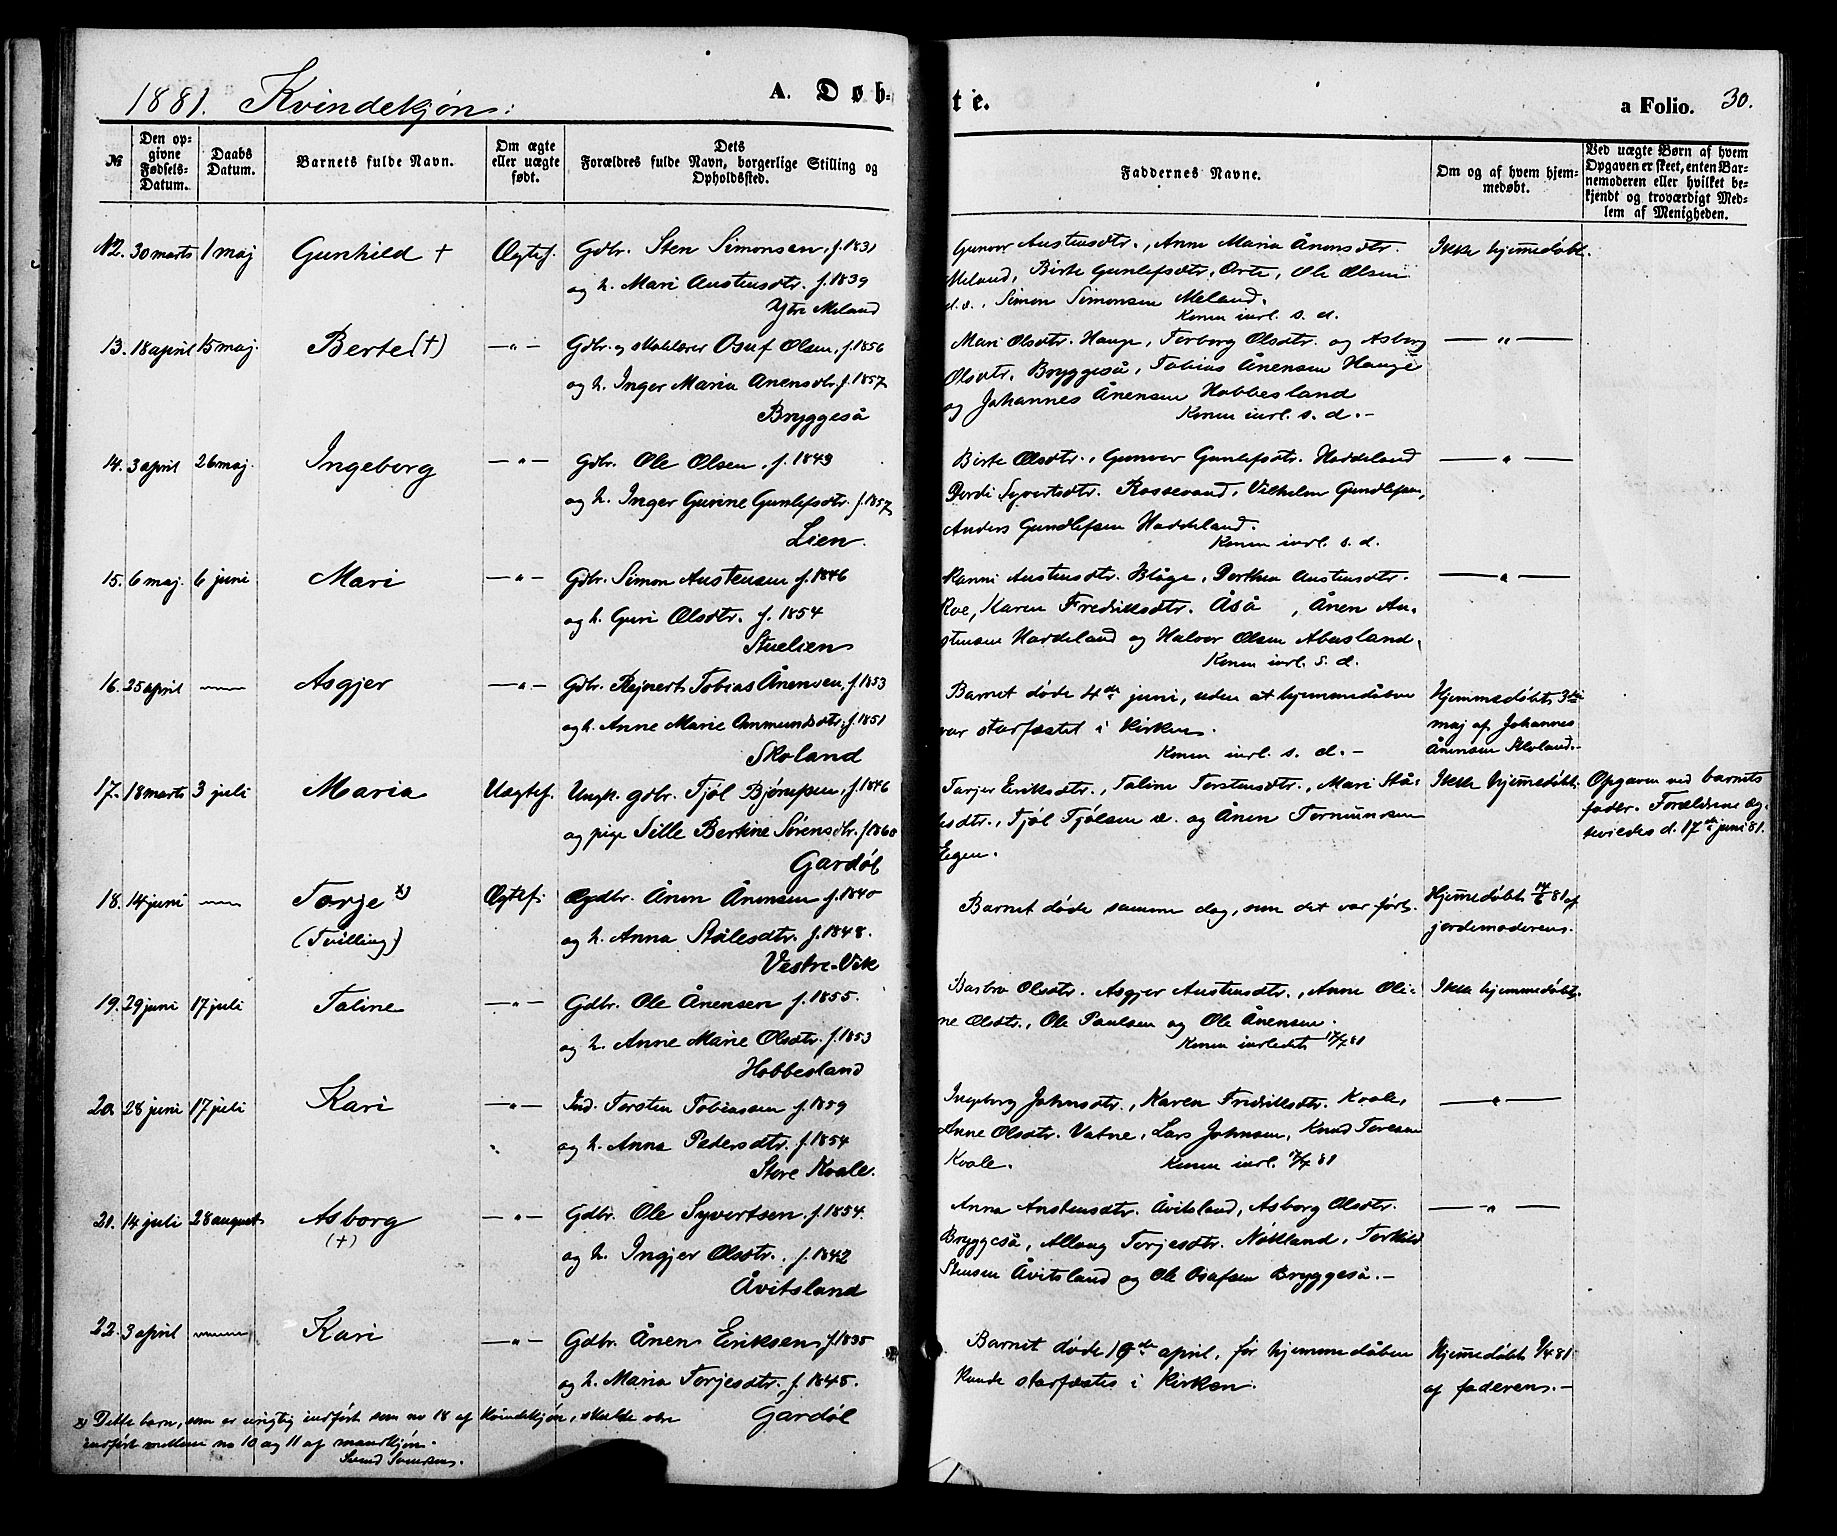 1881. Kvindekjøn:
A. Døb-
te.
a Folio. 30.
№
Den op-
givne
Fødsels-
Datum.
Daabs
Datum.
Barnets fulde Navn.
Om ægte
eller uægte
født.
Dets
Forældres fulde Navn, borgerlige Stilling og
Opholdssted.
Faddernes Navne.
Om og af hvem hjem-
medøbt.
Ved uægte Børn af hvem
Opgaven er skeet, enten Bar-
nemoderen eller hvilket be-
kjendt og troværdigt Med-
lem af Menigheden.
12. 30 marts 1 maj Gunhild + Ægtef. Gdbr. Sten Simonsen f. 1831
og h. Mari Austensdtr. f. 1839
Ytre Meland
Gunvor Austensdtr., Anne Maria Ånensdtr.
Meland, Birte Gunlefsdtr. Orte, Ole Olsen
d.s., Simon Simonsen Meland.
Konen inrl. s. d.
Ikke hjemmedøbt.
13. 18 april 15 maj. Berte (+) — " — Gdbr. og skolelærer Osuf Olsen, f. 1856
og h. Inger Maria Ånensdtr. f. 1857
Bryggeså
Mari Olsdtr. Hauge, Torborg Olsdtr. og Asborg
Olsdtr. Bryggeså, Tobias Ånensen Hauge
og Johannes Ånensen Hobbesland
Konen inrl. s. d. -
— " —
14. 3 april 26 maj. Ingeborg — " — Gdbr. Ole Olsen, f. 1849
og h. Inger Gurine Gunlefsdtr. f. 1857
Lien.
Birte Olsdtr., Gunvor Gunlefsdtr. Haddeland
Syvertsdtr. Rossevand, Vilhelm Gundlefsen,
Anders Gundlefsen Haddeland.
Konen inrl. s. d.
— " —
15. 6 maj. 6 juni Mari — " — Gdbr. Simon Austensen f. 1846
og h. Guri Olsdtr. f. 1854
Stuelien
Austensdtr. Blåge, Dorthea Austensdtr.
Roe, Karen Fredriksdtr. Åså, Ånen Au-
stensen Haddeland og Halvor Olsen Abusland.
Konen inrl. s. d.
— " —
16. 25 april — Asgjer — " — Gdbr. Rejnert Tobias Ånensen, f. 1853
og h. Anne Marie Ammundsdtr. f. 1851
Skoland
Barnet døde 4de juni, uden at hjemmedåben
var stadfæstet i kirken.
Konen inrl. s. d. -
Hjemmedøbt 3die
maj af Johannes
Ånensen Skoland.-
17. 18 marts 3 juli Maria Uægtef. Ungk. gdbr. Tjøl Bjørnsen, f. 1846
og pige Sille Bertine Sørensdtr. f. 1860
Gardøl
Tarjer Eriksdtr., Taline Torstensdtr., Mari Stå-
lesdtr., Tjøl Tjølsen æ. og Ånen Tormundsen
Eegen.
Ikke hjemmedøbt.
Opgaven ved barnets
fader. Forældrene æg-
teviedes d. 17de juni 81.
18. 14 juni — Torje x)
(Tvilling)
Ægtef. Gdbr. Ånen Ånensen f. 1840
og h. Anna Stålesdtr. f. 1848.
Vestre-Vik
Barnet døde samme dag, som det var født.
Hjemmedøbt 14/6 81 af
jordemoderen.
19. 29 juni 17 juli Taline — " — Gdbr. Ole Ånensen f. 1855.
og h. Anne Marie Olsdtr. f. 1853
Hobbesland
Barbro Olsdtr. Asgjer Austensdtr., Anne Oli-
ne Olsdtr., Ole Paulsen og Ole Ånensen.
Konen inrledet 17/7 81
Ikke hjemmedøbt.
20. 28 juni 17 juli Kari — " — Ind. Torsten Tobiassen f. 1859
og h. Anna Pedersdtr. f. 1854
Store Kvale.
Ingeborg Johnsdtr., Karen Fredriksdtr. Kvale,
Anne Olsdtr. Vatne, Lars Johnsen, Knud Toresen
Kvale. Konen inrl. 17/7 81
— " —
21. 14 juli 28 august Asborg
(+)
— " — Gdbr. Ole Syvertsen f. 1854.
og h. Ingjer Olsdtr. f. 1842
Åvitsland
Anna Austensdtr. Åvitsland, Asborg Olsdtr.
Bryggeså, Allaug Torjesdtr. Nøkland, Torkild
Stensen Åvitsland og Ole Osufsen Bryggeså. -
— " —
22. 3 april — Kari — " — Gdbr. Ånen Eiriksen f. 1835
og h. Maria Torjesdtr. f. 1845.
Gardøl
Barnet døde 19de april, før hjemmedåben
kunde stadfæstes i kirken.
Hjemmedøbt 4/4 81
af faderen.-
x) Dette barn, som er urigtig indført som no 18 af kvindekjøn, skulde være
indført mellem no 10 og 11 af mandkjøn.
Svend Svendsen.